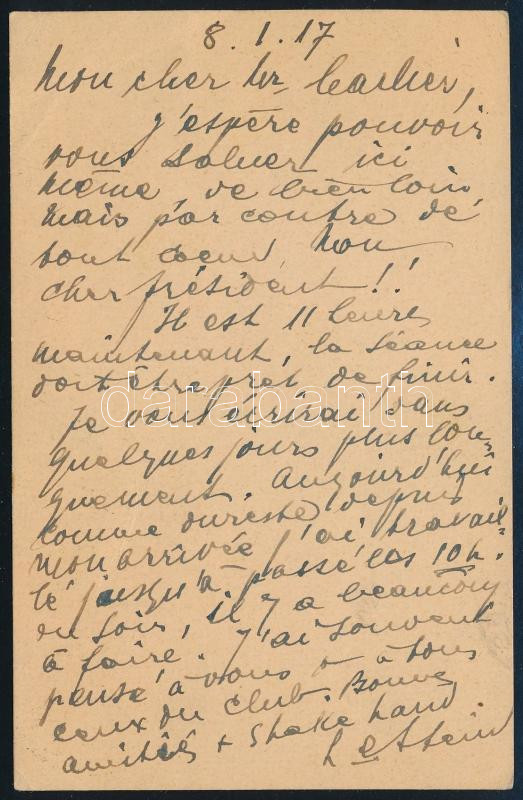 8.1.17
Mon cher Mr
J'espère pouvoir
vous saluer ici
même de bien loin
mais par contre de
tout coeur, Mon
cher président!!
Il est 11 heures
maintenant, la séance
doit être prêt de finir.
Je vous écrirai dans
quelques jours plus lon-
guement. Aujourd'hui
comme du reste depuis
mon arrivée j'ai travail-
lé jusqu'à passé les 10h.
du soir, il y a beaucoup
à faire. J'ai souvent
pensé à vous & à tous
ceux du club. Bonnes
amitiés & Shake hand
darabanth